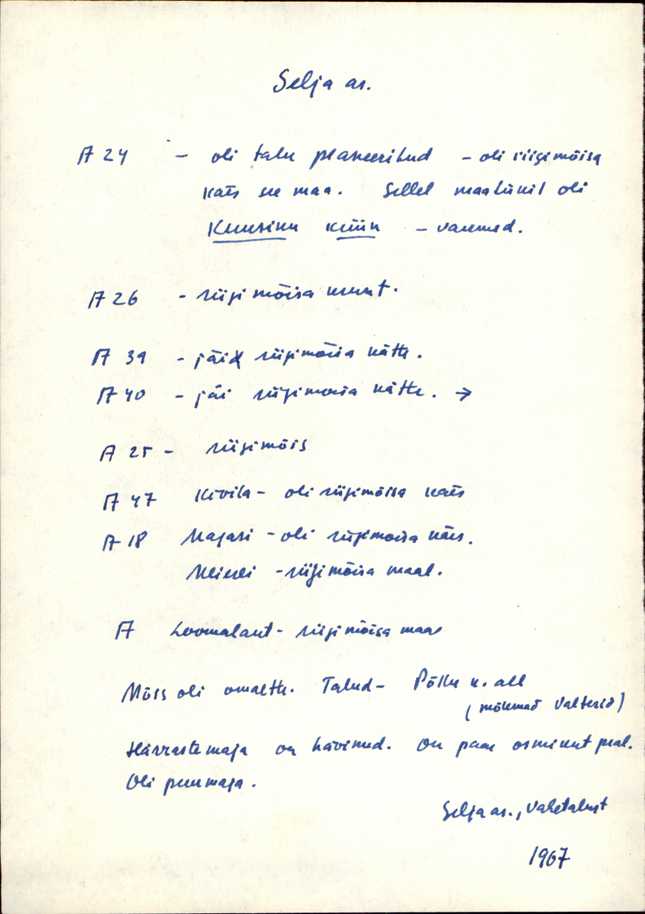 Selja as.
A 24 - oli talu planeeritud - oli riigimõisa
käes see maa. Sellel maatükil oli
Kuusiku küün - varemed.
A 26 - riigimõisa
A 39 - jäid riigimõisa kätte.
A 40 - jäi riigimõisa kätte. →
A 25 - riigimõis
A 47 Kivila - oli riigimõisa käes
A 18 Majasi - oli riigimõisa käes.
- riigimõisa maal.
A Loomalaut - riigimõisa maa
Mõis oli omaette. Talud - Põllu k. all
(mõlemad Valterid)
Härrastemaja on hävinud. On paar osmikut peal.
Oli puumaja.
Selja as., Vahetalust
1967